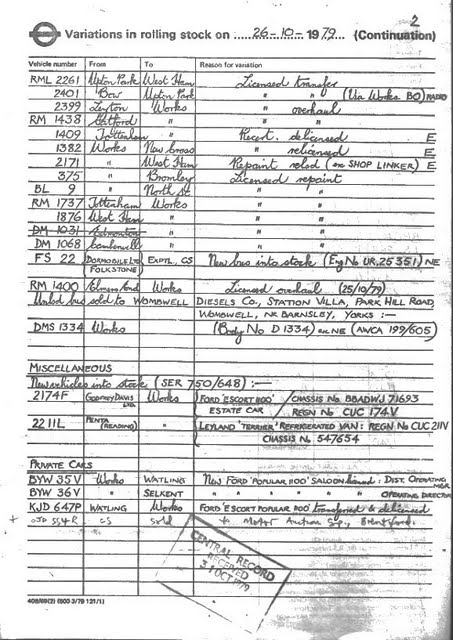 2
Variations in rolling stock on 26-10-1979. (Continuation)
Vehicle number From To Reason for variation
RML 2261 Upton Park West Ham Licensed transfer
2401 Bow Upton Park " " (Via Works BO) RADIO
2399 Leyton Works " overhaul
RM 1438 Catford " " "
1409 Tottenham " Recert. delicensed E
1382 Works New Cross " relicensed E
2171 " West Ham Repaint relsd (ex SHOP LINKER) E
375 " Bromley Licensed repaint
BL 9 " North St. " "
RM 1737 Tottenham Works " "
1876 West Ham " " "
DM 1031 Edmonton " " "
DM 1068 Camberwell " " "
FS 22 DORMOBILE LTD FOLKSTONE EXPTL, CS New bus into stock (Eng No UR,25351) NE
RM 1400 Elmers End Works Licensed overhaul (25/10/79)
Unlsd bus sold to WOMBWELL DIESELS CO., STATION VILLA, PARK HILL ROAD
WOMBWELL, NR BARNSLEY, YORKS :—
DMS 1334 Works (Body No D 1334) ex NE (AWCA 199/605)
MISCELLANEOUS
New vehicles into stock (SER 750/648) :—
2174F GODFREY DAVIS LTD. Works FORD 'ESCORT 1100' ESTATE CAR / CHASSIS No BBADWJ 71693
REGN No CUC 174V
2211L PENTA (READING) " LEYLAND 'TERRIER' REFRIGERATED VAN: REGN No CUC 211V
CHASSIS No 547654
PRIVATE CARS
BYW 35V Works WATLING New FORD 'POPULAR 1100' SALOON : DIST. OPERATING MGR.
BYW 36V " SELKENT " " " " OPERATING DIRECTOR
KJD 647P WATLING Works FORD ESCORT POPULAR 1100 transferred & delicensed
CS sold to Motor Auction Brentford.
CENTRAL RECORD
RECEIVED
31 OCT 1979
408/69(2) (500 3/79 121/1)